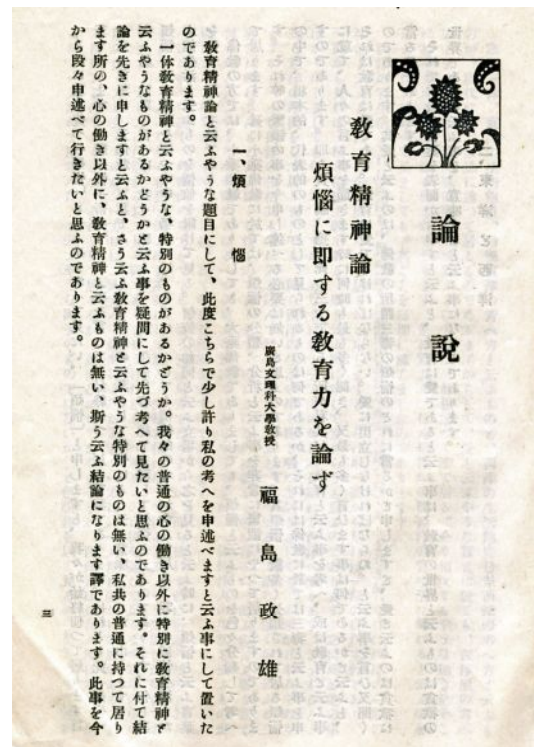 論説
教育精神論
煩悩に即する教育力を論ず
廣島文理科大學教授
福島政雄
一、煩悩
教育精神論と云ふやうな題目にして、此度こちらで少し許り私の考へを申述べますと云ふ事にして置いた
のであります。
一体教育精神と云ふやうな、特別のものがあるかどうか。我々の普通の心の働き以外に特別に教育精神と
云ふやうなものがあるかどうかと云ふ事を疑問にして先づ考へて見たいと思ふのであります。それに付て結
論を先きに申しますと云ふと、さう云ふ教育精神と云ふやうな特別のものは無い、私共の普通に持つて居り
ます所の、心の働き以外に、教育精神と云ふものは無い、斯う云ふ結論になります譯であります。此事を今
から段々申述べて行きたいと思ふのであります。
三